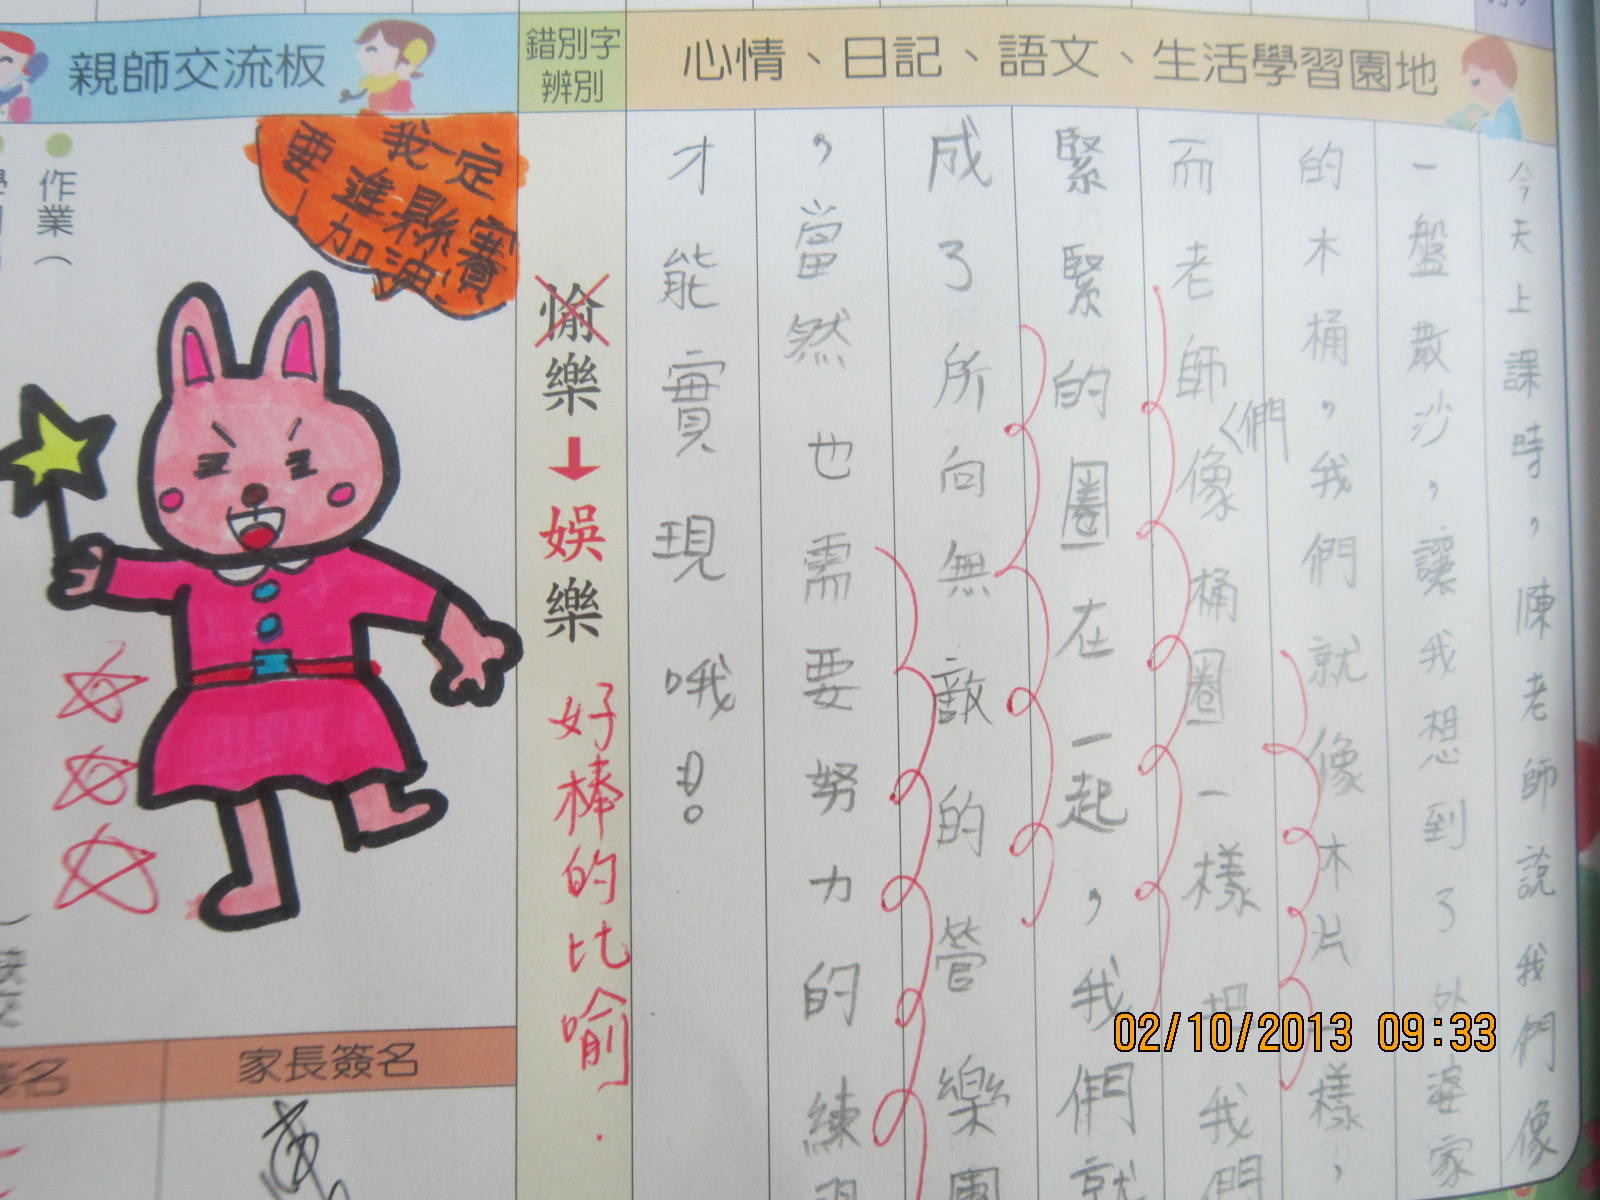 親師交流板
錯別字
辨別
心情、日記、語文、生活學習園地
今天上課時，陳老師說我們像
一盤散沙，讓我想到了外婆家
的木桶，我們就像木片一樣，
而老師們像桶圈一樣把我們
緊緊的圈在一起，我們就
成了所向無敵的管樂團
，當然也需要努力的練習
才能實現哦！
愉樂→娛樂
好棒的比喻.
我一定
要進縣賽
！加油！
作業（
家長簽名
簽名
02/10/2013 09:33